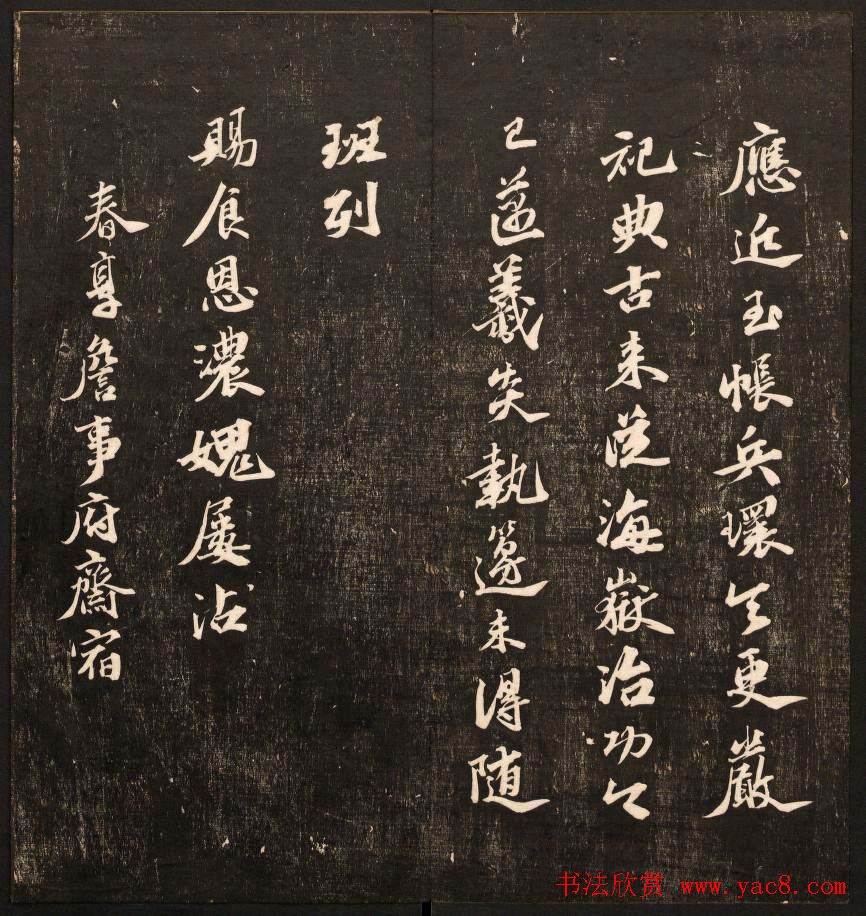 應近玉帳兵環令更嚴
祀典古来從海嶽治功今
已邁羲炎執籩未得隨
班列
賜食恩濃媿屢沾
春享詹事府齋宿
书法欣赏 www.yac8.com